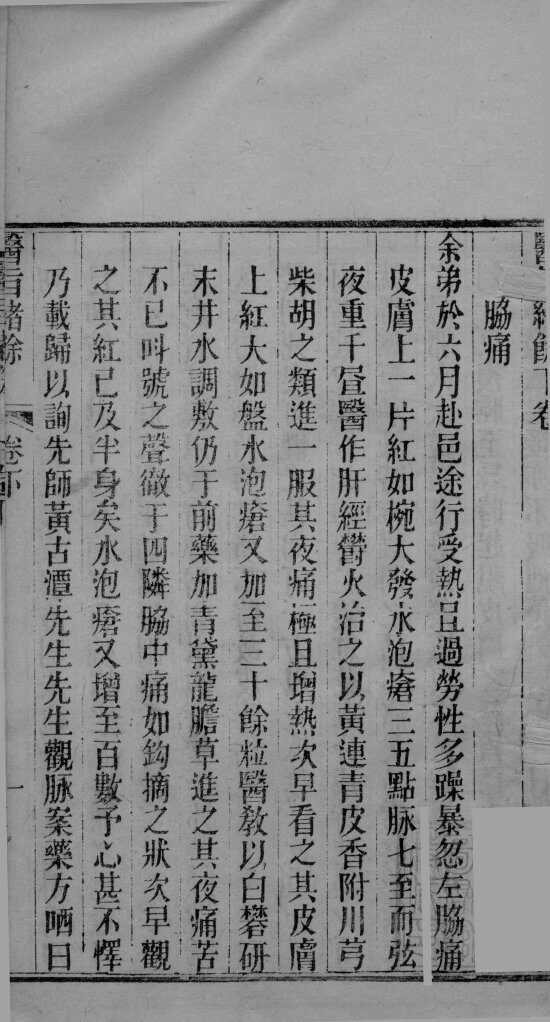 醫旨緒餘下卷
脇痛
余弟於六月赴邑途行受熱且過勞性多躁暴忽左脇痛
皮膚上一片紅如椀大發水泡瘡三五點脉七至而弦
夜重于晝醫作肝經鬱火治之以黃連青皮香附川芎
柴胡之類進一服其夜痛極且增熱次早看之其皮膚
上紅大如盤水泡瘡又加至三十餘粒醫教以白礬研
末井水調敷仍于前藥加青黛龍膽草進之其夜痛苦
不已叫號之聲徹于四隣脇中痛如鈎摘之狀次早觀
之其紅已及半身矣水泡瘡又增至百數予心甚不懌
乃載歸以詢先師黃古潭先生先生觀脉案藥方哂曰
醫旨緒餘 卷下
一